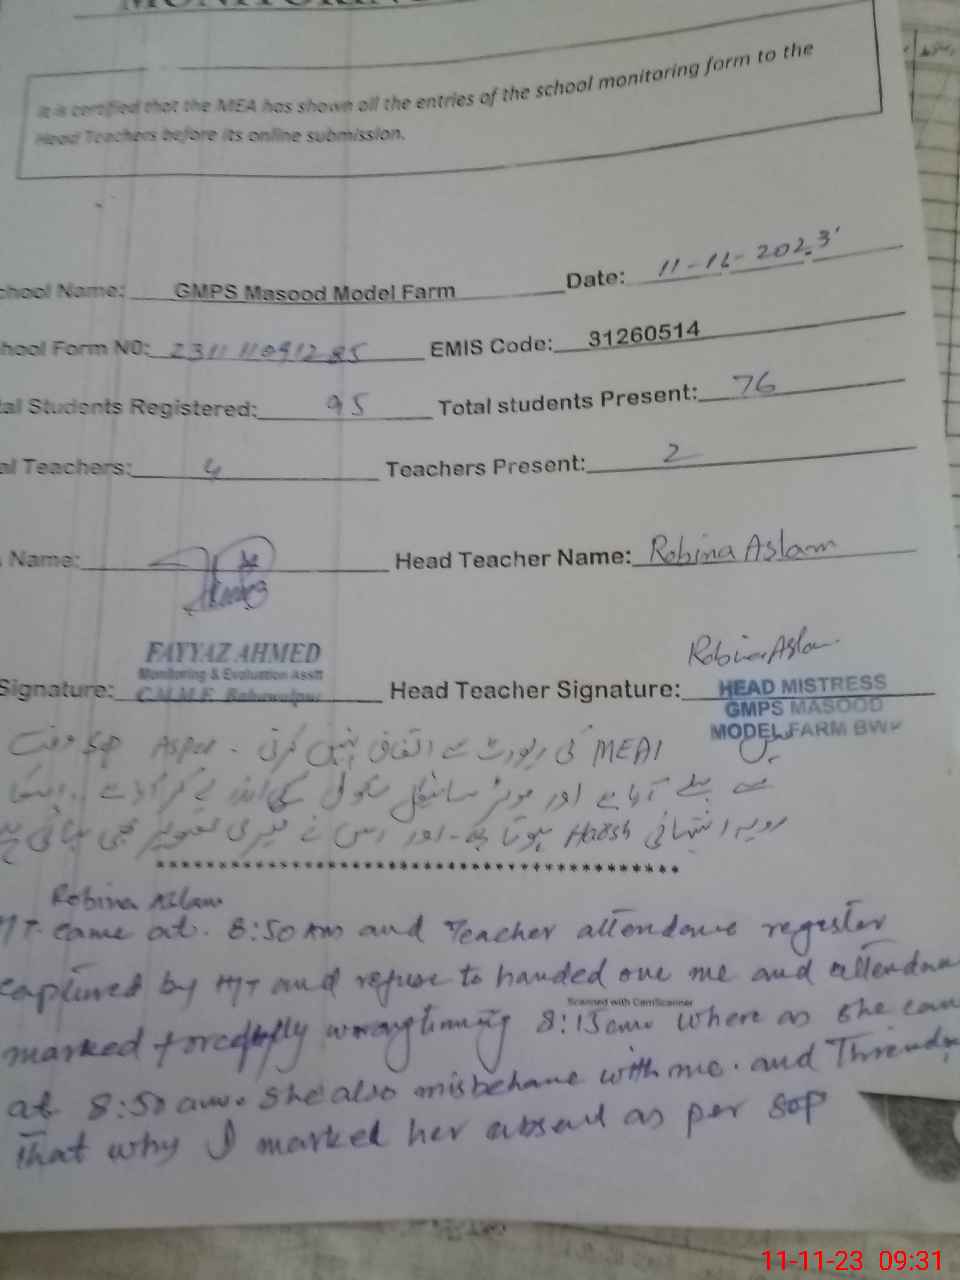 It is certified that the MEA has shown all the entries of the school monitoring form to the
Head Teachers before its online submission.
chool Name: GMPS Masood Model Farm Date: 11-11-2023
hool Form N0: 231111091285 EMIS Code: 31260514
tal Students Registered: 95 Total students Present: 76
al Teachers: 4 Teachers Present: 2
Name: Head Teacher Name: Robina Aslam
Robina Aslam
FAYYAZ AHMED
Monitoring & Evaluation Asstt
C.M.M.F. Bahawalpur
Signature: Head Teacher Signature:
HEAD MISTRESS
GMPS MASOOD
MODEL FARM BWP
میں MEA کی رپورٹ سے اتفاق نہیں کرتی۔ As per SOP وقت
سے پہلے آیا ہے اور موٹر سائیکل سکول کے اندر لے کر آیا ہے۔ اسکا
رویہ انتہائی Harsh ہوتا ہے۔ اور اس نے میری تصویر بھی بنائی ہے
****************************************
Robina Aslam
HT. came at 8:50 am and Teacher attendance register
captured by HT and refuse to handed over me and attendance
Scanned with CamScanner
marked forcefully wrong timing 8:15 am where as she came
at 8:50 am. She also misbehave with me. and
That why I marked her absent as per SOP
11-11-23 09:31